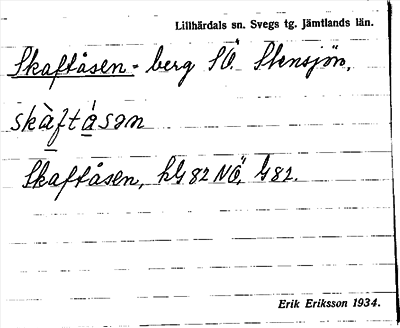 Lillhärdals sn. Svegs tg. Jämtlands län.
Skaftåsen - berg SÖ. Stensjön,
skàftásən
Skaftåsen, hG 82 NÖ, G82.
Erik Eriksson 1934.